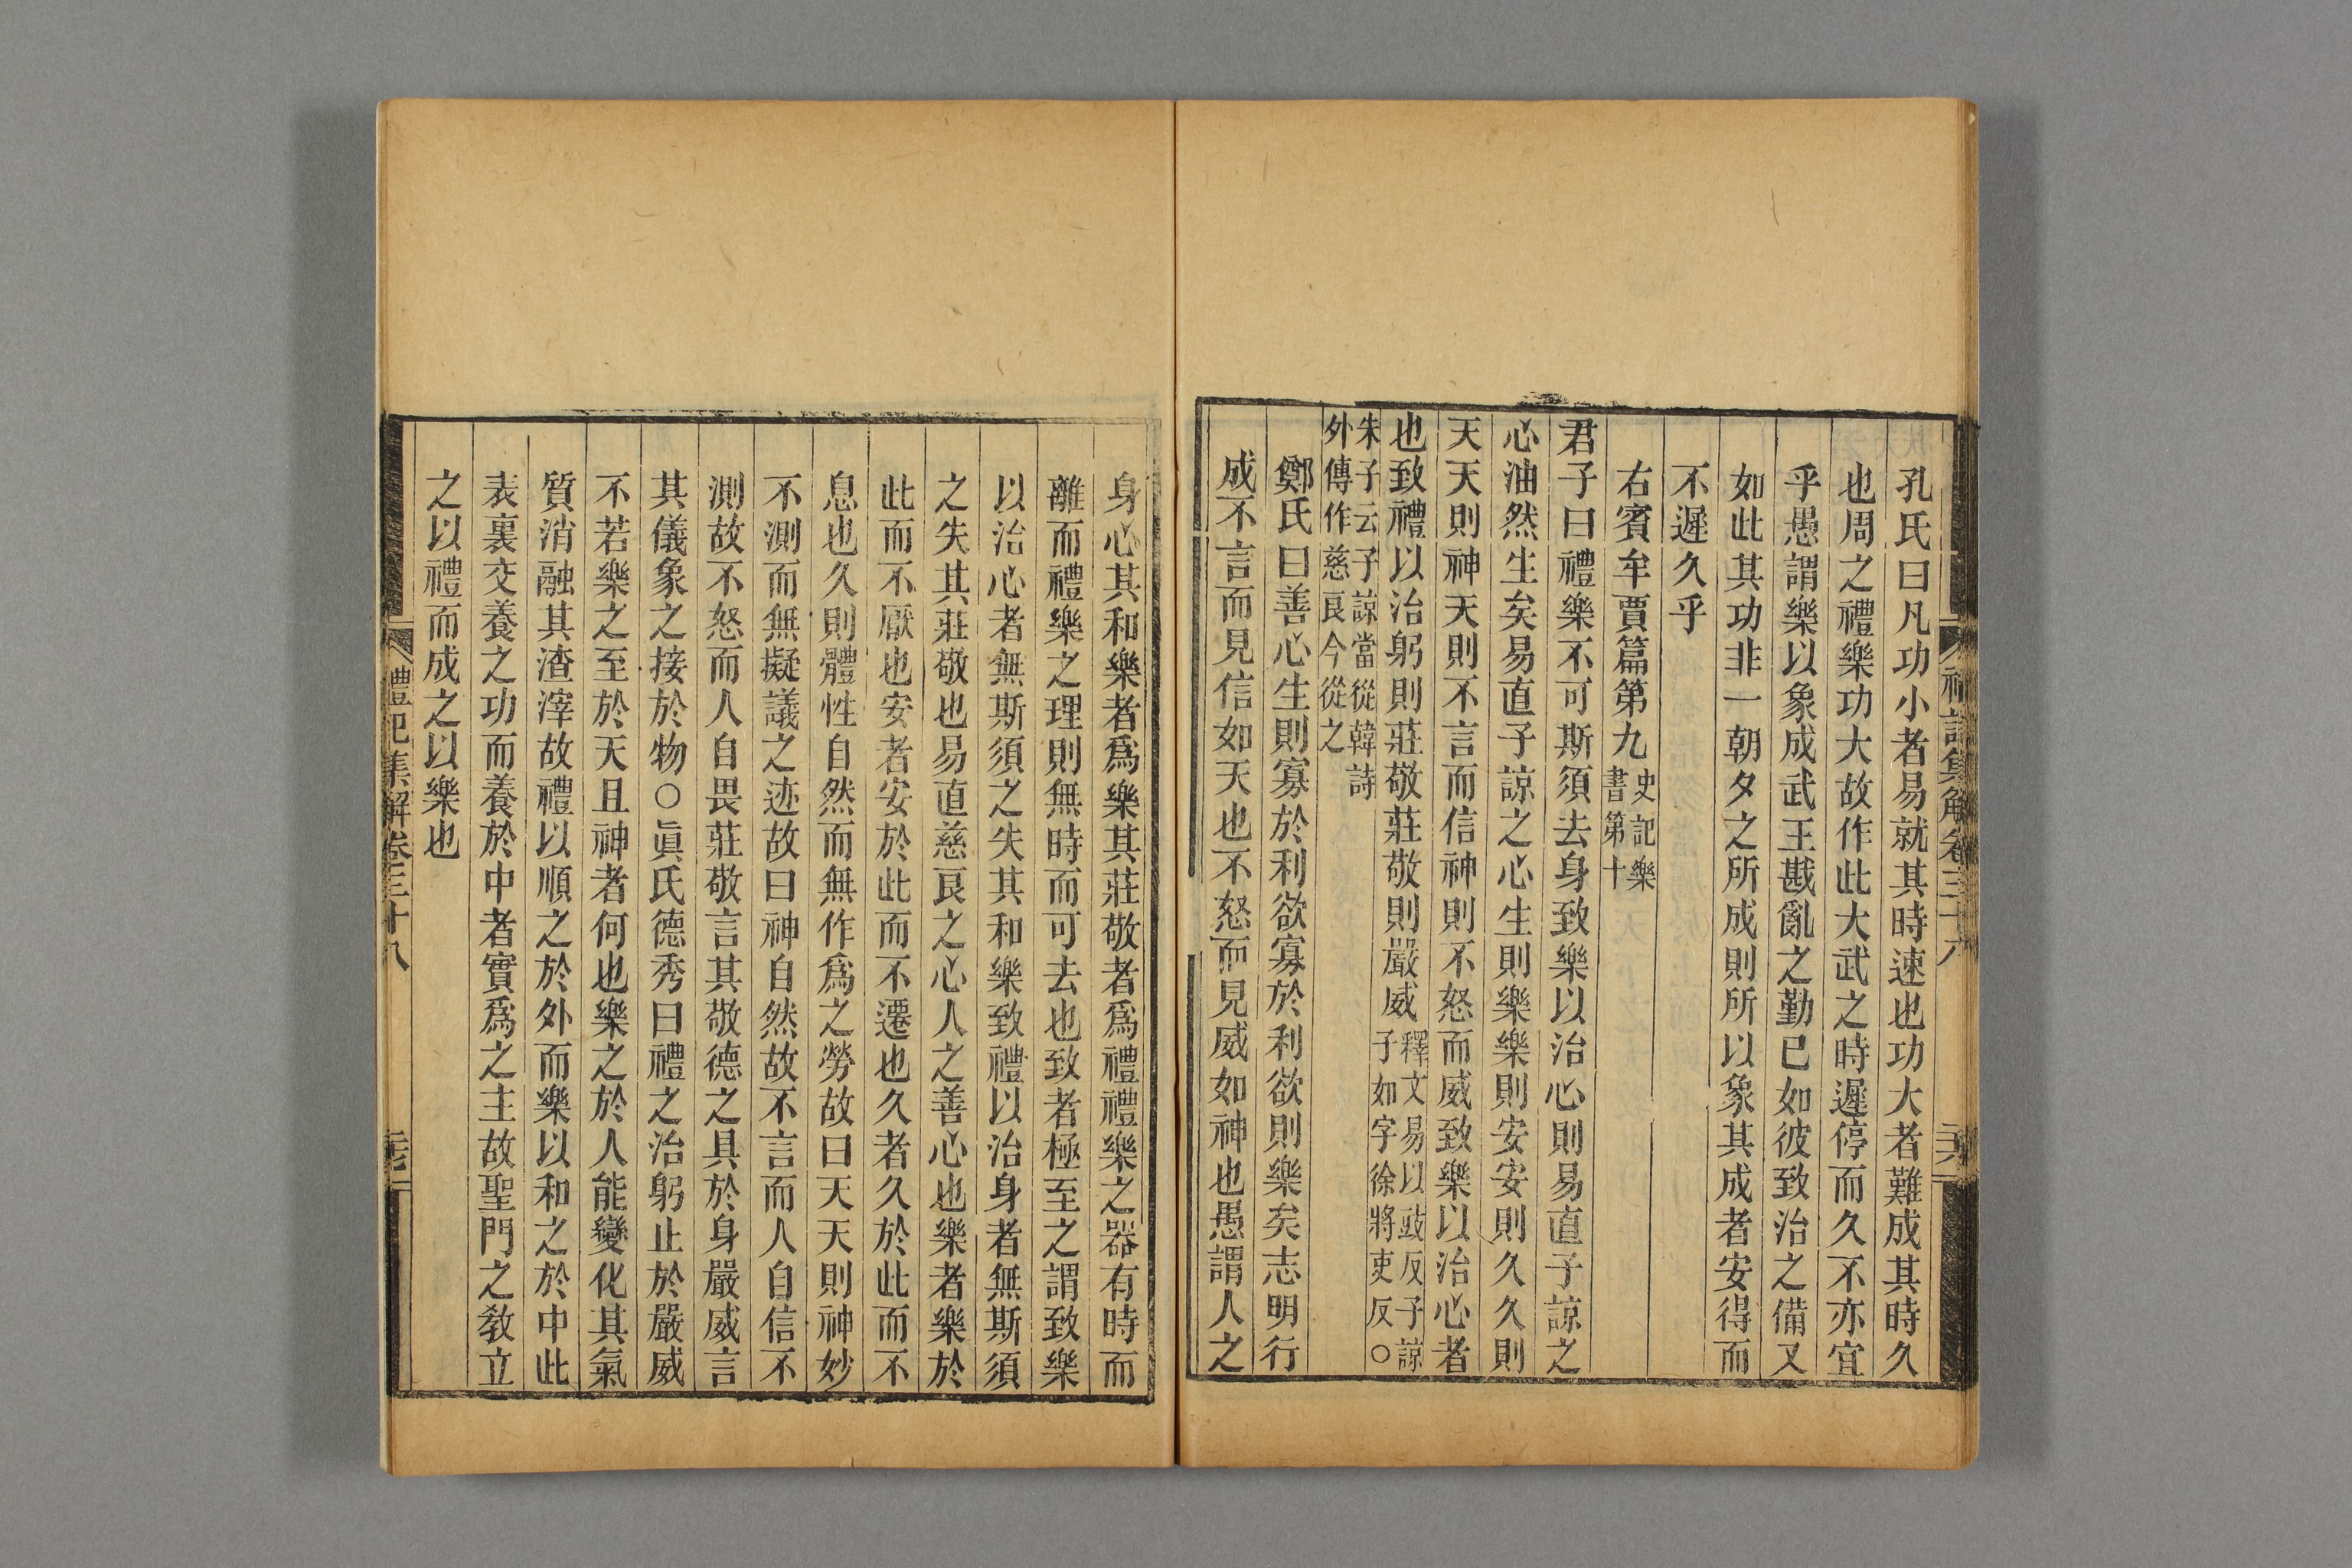 禮記集解卷三十八
孔氏曰凡功小者易就其時速也功大者難成其時久
也周之禮樂功大故作此大武之時遲停而久不亦宜
乎愚謂樂以象成武王戡亂之勤已如彼致治之備又
如此其功非一朝夕之所成則所以象其成者安得而
不遲久乎
右賓牟賈篇第九
史記樂
書第十
君子曰禮樂不可斯須去身致樂以治心則易直子諒之
心油然生矣易直子諒之心生則樂樂則安安則久久則
天天則神天則不言而信神則不怒而威致樂以治心者
也致禮以治躬則莊敬莊敬則嚴威
釋文易以豉反子諒
子如字徐將吏反○
朱子云子諒當從韓詩
外傳作慈良今從之
鄭氏曰善心生則寡於利欲寡於利欲則樂矣志明行
成不言而見信如天也不怒而見威如神也愚謂人之
身心其和樂者爲樂其莊敬者爲禮禮樂之器有時而
離而禮樂之理則無時而可去也致者極至之謂致樂
以治心者無斯須之失其和樂致禮以治身者無斯須
之失其莊敬也易直慈良之心人之善心也樂者樂於
此而不厭也安者安於此而不遷也久者久於此而不
息也久則體性自然而無作爲之勞故曰天天則神妙
不測而無擬議之迹故曰神自然故不言而人自信不
測故不怒而人自畏莊敬言其敬德之具於身嚴威言
其儀象之接於物○眞氏德秀曰禮之治躬止於嚴威
不若樂之至於天且神者何也樂之於人能變化其氣
質消融其渣滓故禮以順之於外而樂以和之於中此
表裏交養之功而養於中者實爲之主故聖門之教立
之以禮而成之以樂也
禮記集解卷三十八